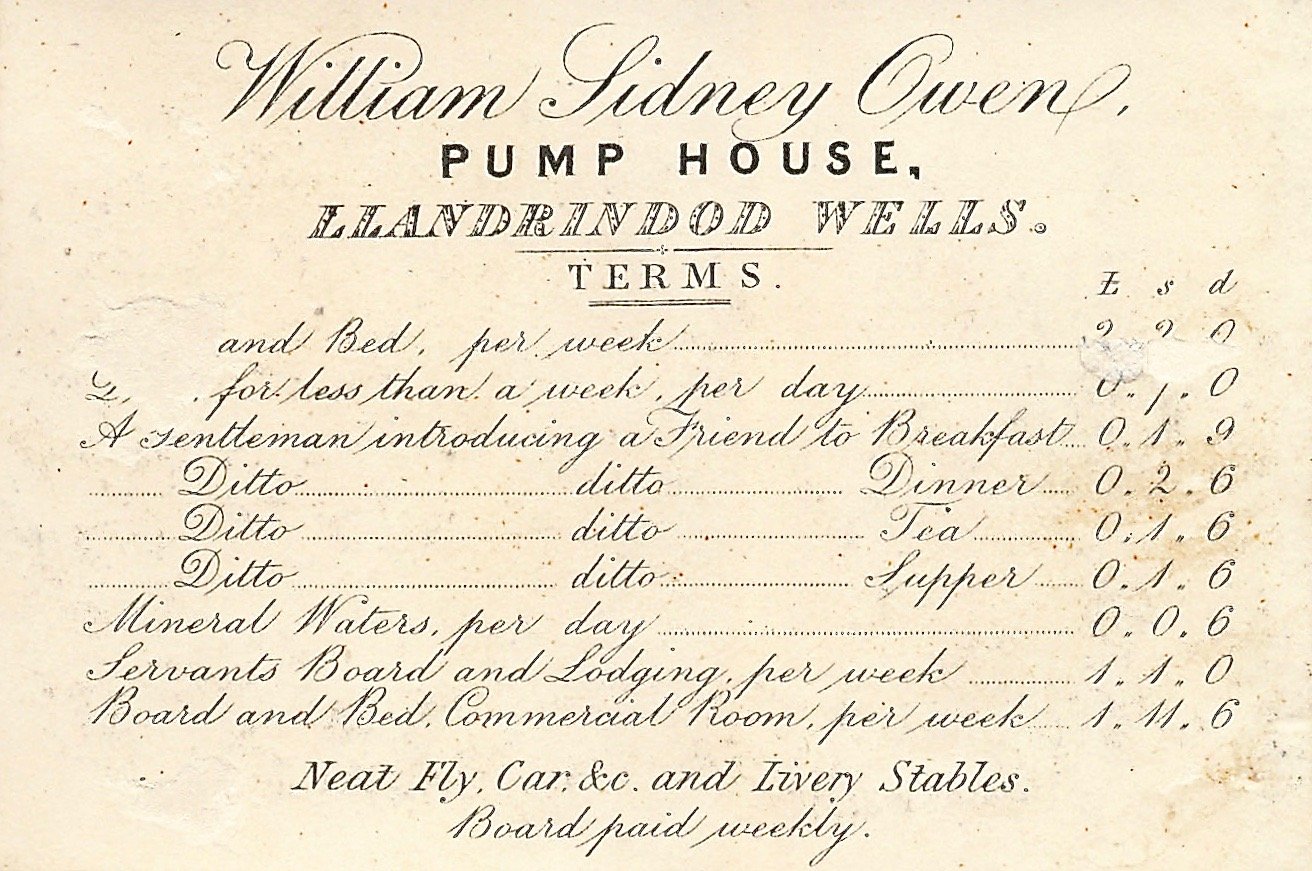 William Sidney Owen,
PUMP HOUSE,
LLANDRINDOD WELLS.
TERMS.
£ s d
and Bed, per week
for less than a week, per day 0 0
A Gentleman introducing a Friend to Breakfast 0 „ 1 „ 9
Ditto ditto Dinner 0 „ 2 „ 6
Ditto ditto Tea 0 „ 1 „ 6
Ditto ditto Supper 0 „ 1 „ 6
Mineral Waters, per day 0 „ 0 „ 6
Servants Board and Lodging, per week 1 „ 1 „ 0
Board and Bed, Commercial Room, per week 1 „ 11 „ 6
Neat Fly, Car, &c. and Livery Stables.
Board paid weekly.